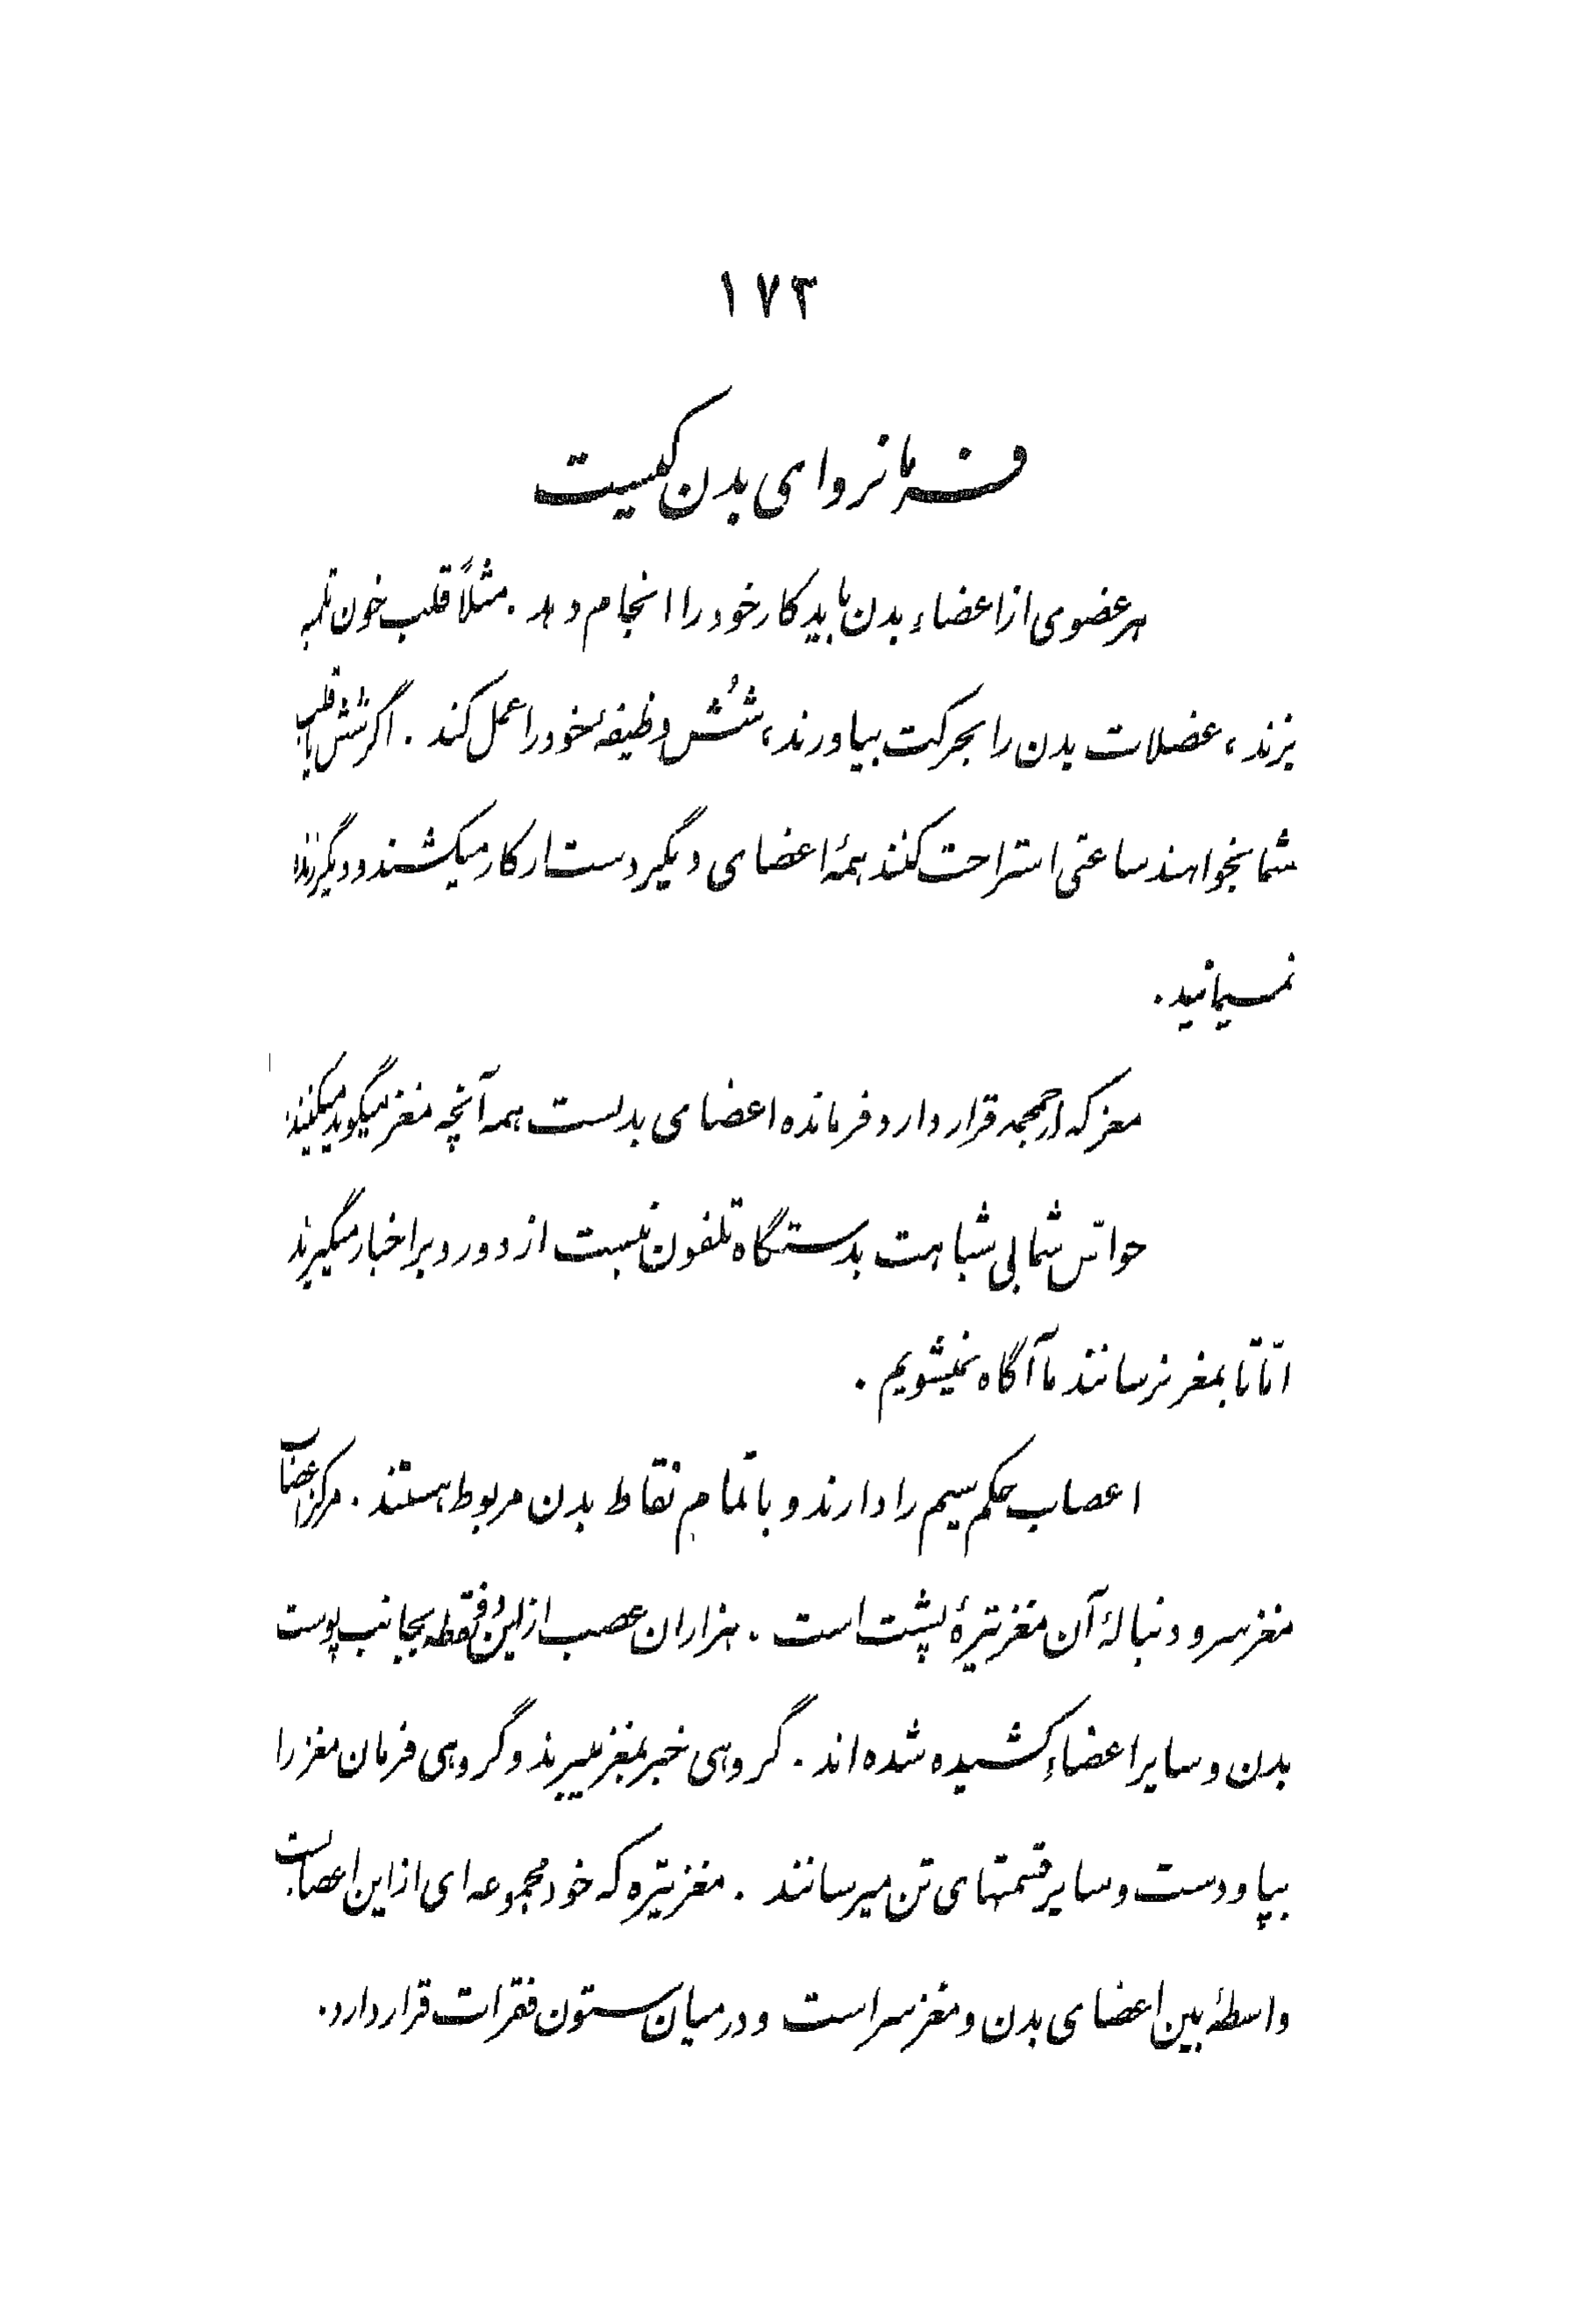 ۱۷۲
فرمانروای بدن کیست
هر عضوی از اعضاء بدن باید کار خود را انجام دهد . مثلاً قلب خون تلمبه
بزند ، عضلات بدن را بحرکت بیاورند ، شُش وظیفهٔ خود را عمل کند . اگر شش یا قلب
شما بخواهند ساعتی استراحت کنند همهٔ اعضای دیگر دست از کار میکشند و دیگر زنده
نمیمانید .
مغز که در جمجمه قرار دارد فرمانده اعضای بدنست همه آنچه مغز میگوید میکنند
حواسّ شما بی شباهت بدستگاه تلفون نیست از دور و بر اخبار میگیرند
امّا تا بمغز نرسانند ما آگاه نمیشویم .
اعصاب حکم سیم را دارند و با تمام نقاط بدن مربوط هستند . مرکز اعصاب
مغز سر و دنبالهٔ آن مغز تیرهٔ پشت است . هزاران عصب از این دو نقطه بجانب پوست
بدن و سایر اعضاء کشیده شده‌اند . گروهی خبر بمغز میبرند و گروهی فرمان مغز را
بپا و دست و سایر قسمتهای تن میرسانند . مغز تیره که خود مجموعه‌ای از این اعصابست
واسطهٔ بین اعضای بدن و مغز سر است و در میان ستون فقرات قرار دارد .